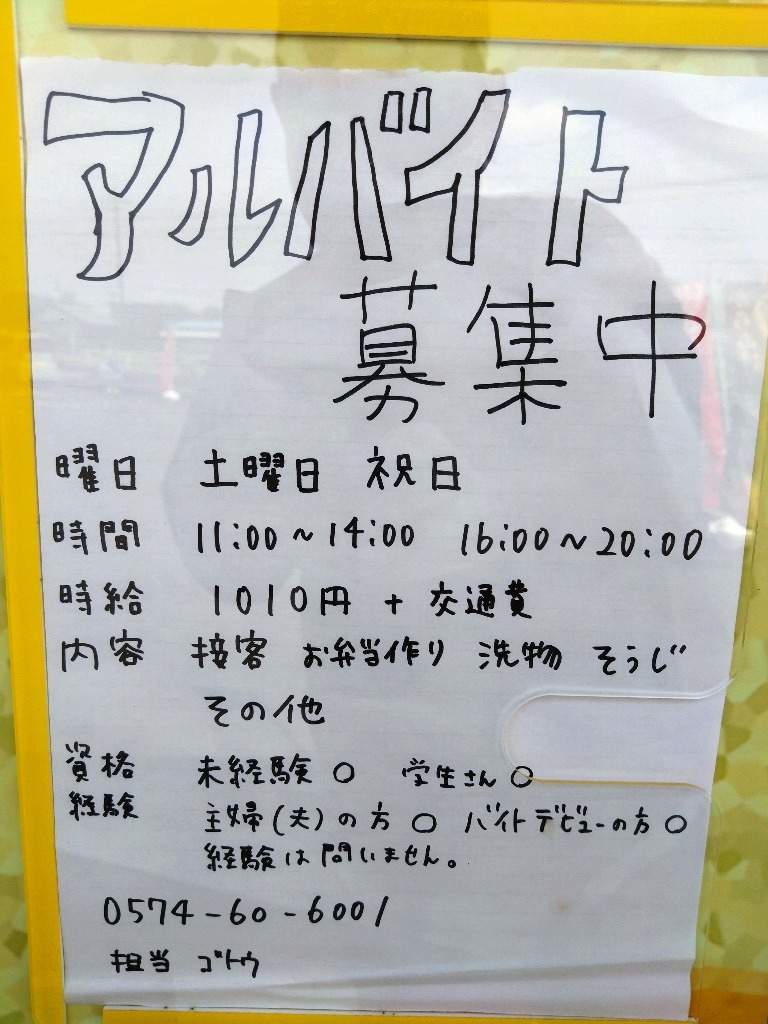 アルバイト
募集中
曜日 土曜日 祝日
時間 11:00～14:00 16:00～20:00
時給 1010円 + 交通費
内容 接客 お弁当作り 洗物 そうじ
その他
資格 未経験○ 学生さん○
経験 主婦(夫)の方○ バイトデビューの方○
経験は問いません。
0574-60-6001
担当 ゴトウ